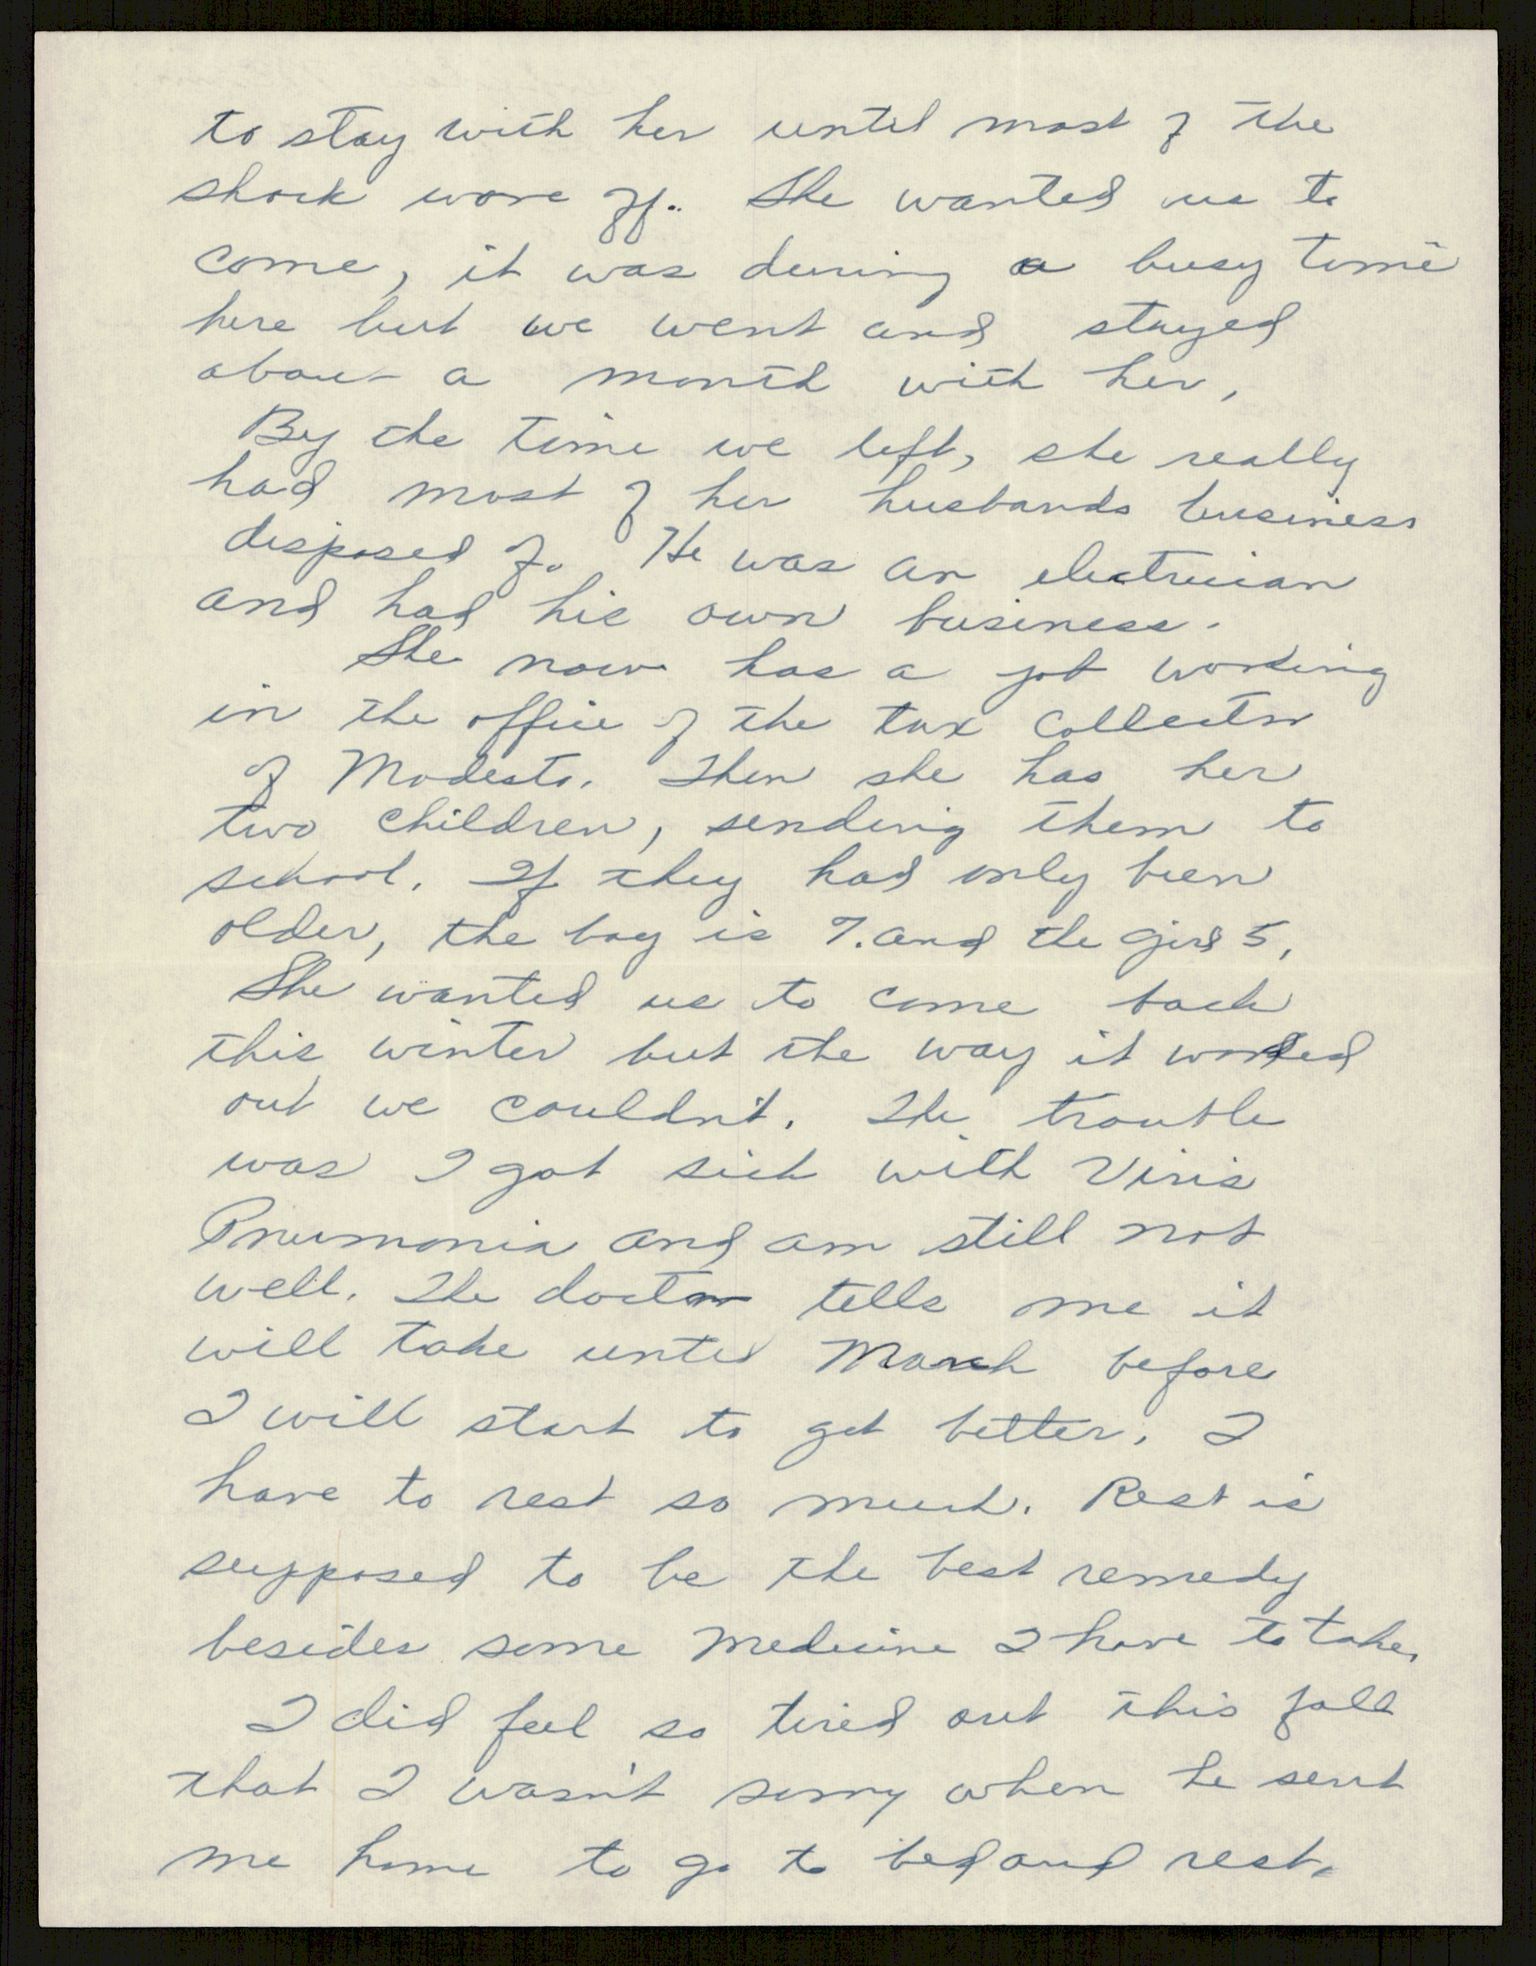 to stay with her until most of the
shock wore off. She wanted us to
come, it was during a busy time
here but we went and stayed
about a month with her,
By the time we left, she really
had most of her husbands business
disposed of. He was an electrician
and had his own business.
She now has a job working
in the office of the tax collector
of Modesto. Then she has her
two children, sending them to
school. If they had only been
older, the boy is 7. and the girl 5,
She wanted us to come back
this winter but the way it worked
out we couldn't. The trouble
was I got sick with Viris
Pnumonia and am still not
well. The doctor tells me it
will take until March before
I will start to get better. I
have to rest so much. Rest is
supposed to be the best remedy
besides some medicine I have to take.
I did feel so tired out this fall
that I wasn't sorry when he sent
me home to go to bed and rest.